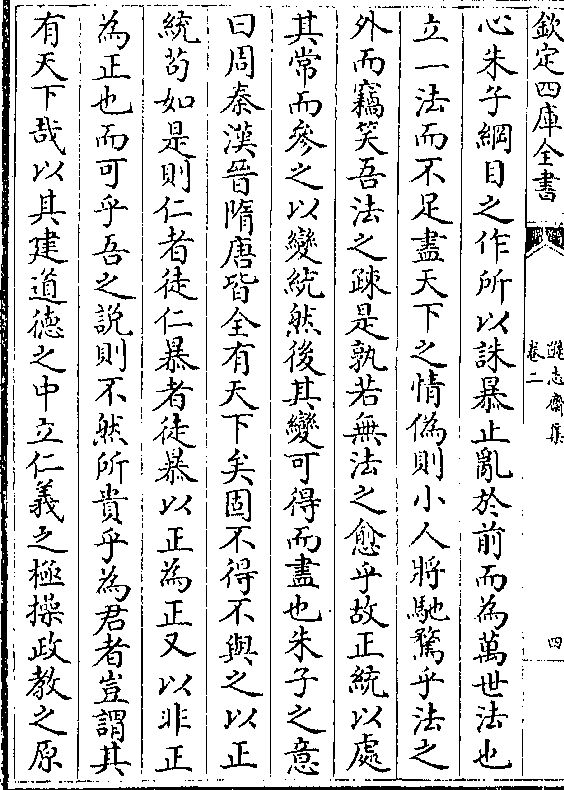 欽定四庫全書
遜志齋集
卷二
四
心朱子綱目之作所以誅暴止亂於前而為萬世法也
立一法而不足盡天下之情偽則小人將馳騖乎法之
外而竊笑吾法之疎是孰若無法之愈乎故正統以處
其常而參之以變統然後其變可得而盡也朱子之意
曰周秦漢晉隋唐皆全有天下矣固不得不與之以正
統茍如是則仁者徒仁暴者徒暴以正為正又以非正
為正也而可乎吾之說則不然所貴乎為君者豈謂其
有天下哉以其建道德之中立仁義之極操政教之原